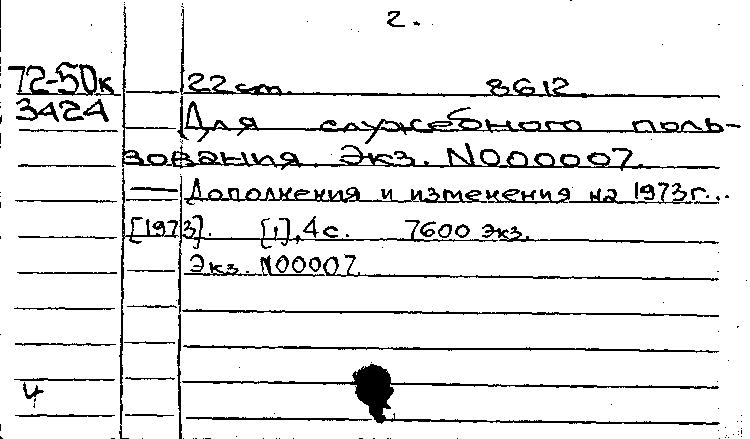 2.
72-50к 22 см. 8612.
3424 Для служебного поль-
зования. Экз. N000007.
— Дополнения и изменения на 1973г...
[1973]. [1], 4 с. 7600 экз.
Экз. N00007
ч